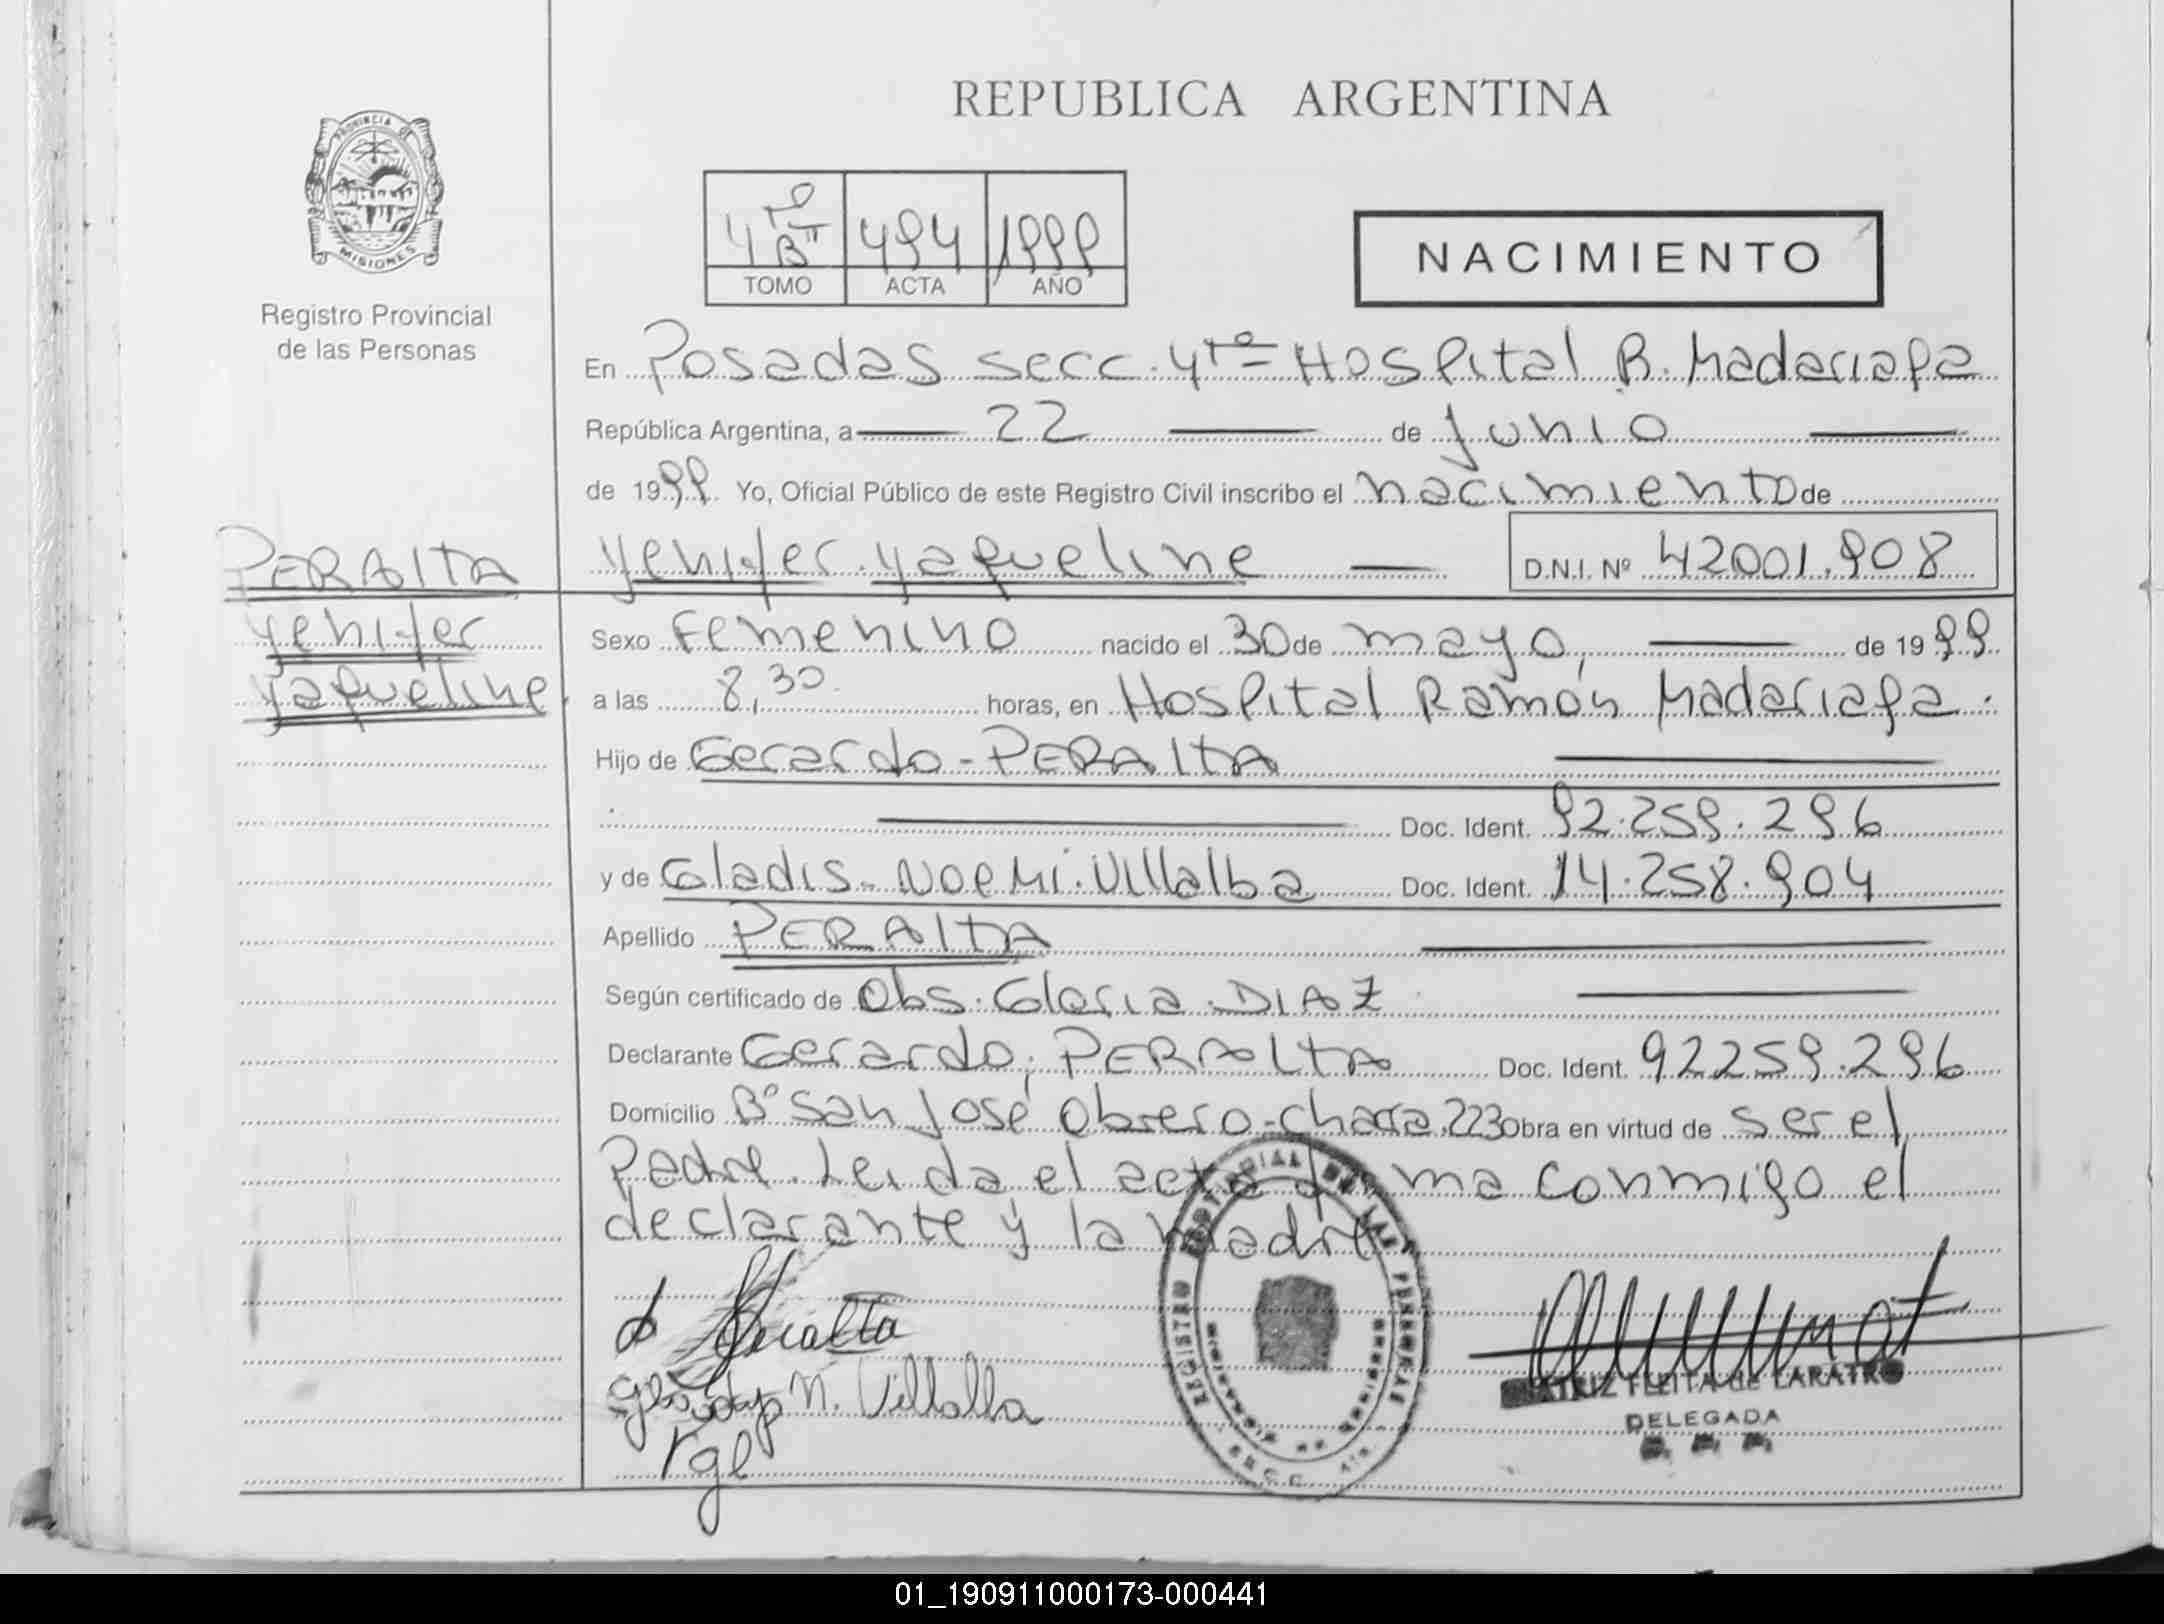 REPUBLICA ARGENTINA
PROVINCIA DE
MISIONES
Registro Provincial
de las Personas
4to BII 494 1999
TOMO ACTA AÑO
NACIMIENTO
En Posadas secc. 4to Hospital R. Madariaga
República Argentina, a 22 de Junio
de 1999. Yo, Oficial Público de este Registro Civil inscribo el nacimiento de
PERALTA
Yenifer Yaqueline
Yenifer Yaqueline D.N.I. Nº 42001.908
Sexo Femenino nacido el 30 de mayo, de 1999
a las 8,30 horas, en Hospital Ramón Madariaga.
Hijo de Gerardo - PERALTA
Doc. Ident. 92.259.296
y de Gladis - Noemi. Villalba Doc. Ident. 14.258.904
Apellido PERALTA
Según certificado de Obs. Gloria DIAZ
Declarante Gerardo; PERALTA Doc. Ident. 92259.296
Domicilio Bº San José Obrero - chacra 223 Obra en virtud de ser el
Padre. Leida el acta firma conmigo el
declarante y la madre
Peralta
N. Villalba
REGISTRO PROVINCIAL DE LAS PERSONAS
MISIONES
SECC. 4ta
BEATRIZ FLEITA de LARATRO
DELEGADA
01_190911000173-000441